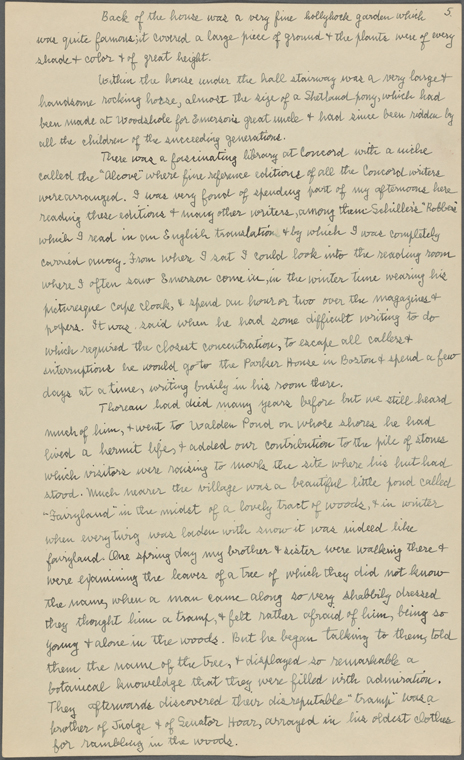 5.
Back of the house was a very fine hollyhock garden which
was quite famous; it covered a large piece of ground & the plants were of every
shade & color & of great height.
Within the house under the hall stairway was a very large &
handsome rocking horse, almost the size of a Shetland pony, which had
been made at Woodshole for Emerson's great uncle & had since been ridden by
all the children of the succeeding generations.
There was a fascinating library at Concord with a niche
called the "Alcove" where fine reference editions of all the Concord writers
were arranged. I was very fond of spending part of my afternoons here
reading these editions & many other writers, among them Schiller's "Robbers"
which I read in an English translation & by which I was completely
carried away. From where I sat I could look into the reading room
where I often saw Emerson come in, in the winter time wearing his
picturesque cape cloak, & spend an hour or two over the magazines &
papers. It was said when he had some difficult writing to do
which required the closest concentration, to escape all callers &
interruptions he would go to the Parker House in Boston & spend a few
days at a time, writing busily in his room there.
Thoreau had died many years before but we still heard
much of him, & went to Walden Pond on whose shores he had
lived a hermit life, & added our contribution to the pile of stones
which visitors were raising to mark the site where his hut had
stood. Much nearer the village was a beautiful little pond called
"Fairyland" in the midst of a lovely tract of woods, & in winter
when everything was laden with snow it was indeed like
fairyland. One spring day my brother & sister were walking there &
were examining the leaves of a tree of which they did not know
the name, when a man came along so very shabbily dressed
they thought him a tramp, & felt rather afraid of him, being so
young & alone in the woods. But he began talking to them, told
them the name of the tree, & displayed so remarkable a
botanical knoweldge that they were filled with admiration.
They afterwards discovered their disreputable "tramp" was a
brother of Judge & of Senator Hoar, arrayed in his oldest clothes
for rambling in the woods.